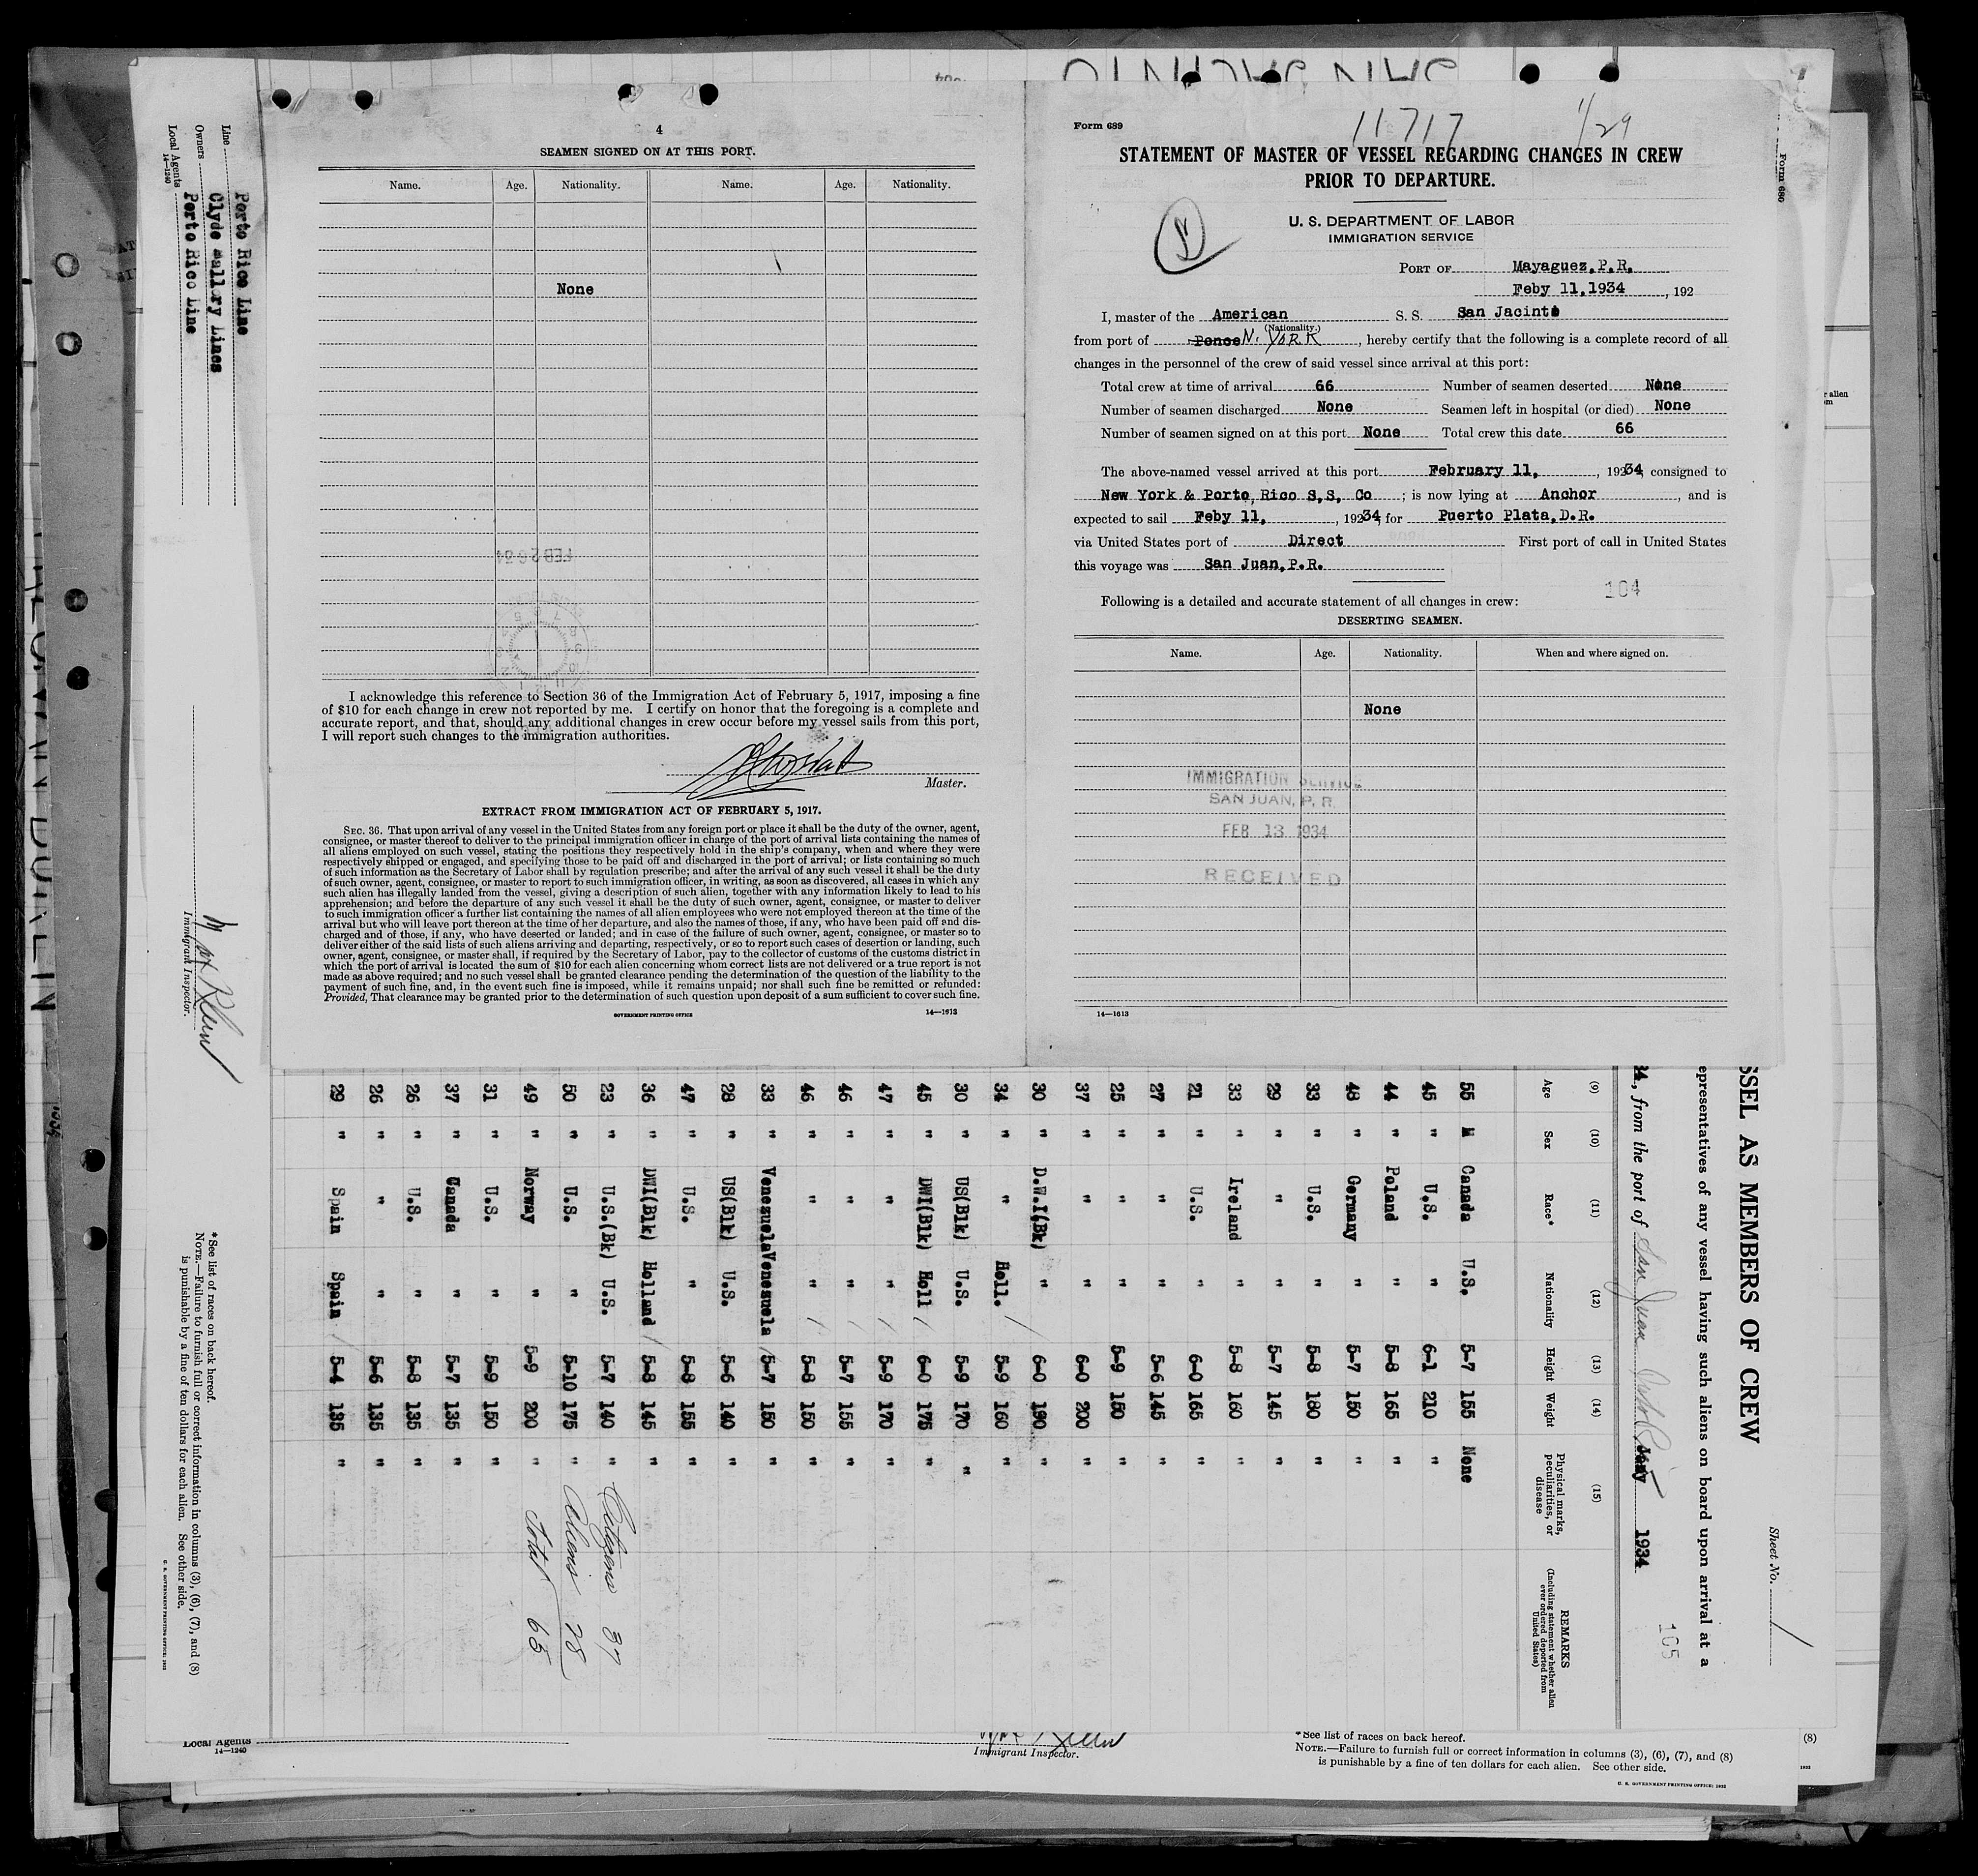 4
SEAMEN SIGNED ON AT THIS PORT.
Name. Age. Nationality. Name. Age. Nationality.
None
FEB 26 34
I acknowledge this reference to Section 36 of the Immigration Act of February 5, 1917, imposing a fine
of $10 for each change in crew not reported by me. I certify on honor that the foregoing is a complete and
accurate report, and that, should any additional changes in crew occur before my vessel sails from this port,
I will report such changes to the immigration authorities.
Master.
EXTRACT FROM IMMIGRATION ACT OF FEBRUARY 5, 1917.
SEC. 36. That upon arrival of any vessel in the United States from any foreign port or place it shall be the duty of the owner, agent,
consignee, or master thereof to deliver to the principal immigration officer in charge of the port of arrival lists containing the names of
all aliens employed on such vessel, stating the positions they respectively hold in the ship's company, when and where they were
respectively shipped or engaged, and specifying those to be paid off and discharged in the port of arrival; or lists containing so much
of such information as the Secretary of Labor shall by regulation prescribe; and after the arrival of any such vessel it shall be the duty
of such owner, agent, consignee, or master to report to such immigration officer, in writing, as soon as discovered, all cases in which any
such alien has illegally landed from the vessel, giving a description of such alien, together with any information likely to lead to his
apprehension; and before the departure of any such vessel it shall be the duty of such owner, agent, consignee, or master to deliver
to such immigration officer a further list containing the names of all alien employees who were not employed thereon at the time of the
arrival but who will leave port thereon at the time of her departure, and also the names of those, if any, who have been paid off and dis-
charged and of those, if any, who have deserted or landed; and in case of the failure of such owner, agent, consignee, or master so to
deliver either of the said lists of such aliens arriving and departing, respectively, or so to report such cases of desertion or landing, such
owner, agent, consignee, or master shall, if required by the Secretary of Labor, pay to the collector of customs of the customs district in
which the port of arrival is located the sum of $10 for each alien concerning whom correct lists are not delivered or a true report is not
made as above required; and no such vessel shall be granted clearance pending the determination of the question of the liability to the
payment of such fine, and, in the event such fine is imposed, while it remains unpaid; nor shall such fine be remitted or refunded:
Provided, That clearance may be granted prior to the determination of such question upon deposit of a sum sufficient to cover such fine.
GOVERNMENT PRINTING OFFICE 14—1613
Form 689
11717 1/29
STATEMENT OF MASTER OF VESSEL REGARDING CHANGES IN CREW
PRIOR TO DEPARTURE.
U. S. DEPARTMENT OF LABOR
IMMIGRATION SERVICE
PORT OF Mayaguez, P.R.
Feby 11, 1934, 192
I, master of the American S. S. San Jacinto
(Nationality.)
from port of Ponce N. YORK, hereby certify that the following is a complete record of all
changes in the personnel of the crew of said vessel since arrival at this port:
Total crew at time of arrival 66 Number of seamen deserted None
Number of seamen discharged None Seamen left in hospital (or died) None
Number of seamen signed on at this port None Total crew this date 66
The above-named vessel arrived at this port February 11, 19234, consigned to
New York & Porto Rico S.S. Co ; is now lying at Anchor, and is
expected to sail Feby 11, 19234, for Puerto Plata, D.R.
via United States port of Direct First port of call in United States
this voyage was San Juan, P.R.
104
Following is a detailed and accurate statement of all changes in crew:
DESERTING SEAMEN.
Name. Age. Nationality. When and where signed on.
None
IMMIGRATION SERVICE
SAN JUAN, P. R.
FEB 13 1934
RECEIVED
14—1613
Form 680
Line Porto Rico Line
Owners Clyde Mallory Lines
Local Agents Porto Rico Line
14—1240
Immigrant Inspector.
Sheet No. 1
SSEL AS MEMBERS OF CREW
epresentatives of any vessel having such aliens on board upon arrival at a
34, from the port of San Juan Porto Rico 1934
105
(9) (10) (11) (12) (13) (14) (15)
Age Sex Race* Nationality Height Weight Physical marks, peculiarities, or disease REMARKS (Including statement whether alien ever ordered deported from United States)
55 M Canada U.S. 5-7 155 None
45 " U.S. " 6-1 210 "
44 " Poland " 5-8 165 "
48 " Germany " 5-7 150 "
33 " U.S. " 5-8 180 "
29 " " " 5-7 145 "
33 " Ireland " 5-8 160 "
21 " U.S. " 6-0 165 "
27 " " " 5-6 145 "
25 " " " 5-9 150 "
37 " " " 6-0 200 "
30 " D.W.I(Bk) " 6-0 190 "
34 " " Holl. 5-9 160 "
30 " US(Blk) U.S. 5-9 170 "
45 " DWI(Blk) Holl 6-0 175 "
47 " " " 5-9 170 "
46 " " " 5-7 155 "
46 " " " 5-8 150 "
33 " Venezuela Venezuela 5-7 150 "
28 " US(Blk) U.S. 5-6 140 "
47 " U.S. " 5-8 155 "
36 " DWI(Blk) Holand 5-8 145 "
23 " U.S.(Bk) U.S. 5-7 140 " Citizens 37
50 " U.S. " 5-10 175 " Aliens 28
49 " Norway " 5-9 200 " Total 65
31 " U.S. " 5-9 150 "
37 " Canada " 5-7 135 "
26 " U.S. " 5-8 135 "
26 " " " 5-6 135 "
29 " Spain Spain 5-4 135 "
* See list of races on back hereof.
NOTE.—Failure to furnish full or correct information in columns (3), (6), (7), and (8)
is punishable by a fine of ten dollars for each alien. See other side.
U. S. GOVERNMENT PRINTING OFFICE: 1932
Local Agents
14—1240
Immigrant Inspector.
* See list of races on back hereof.
NOTE.—Failure to furnish full or correct information in columns (3), (6), (7), and (8)
is punishable by a fine of ten dollars for each alien. See other side.
U. S. GOVERNMENT PRINTING OFFICE: 1932
(8)